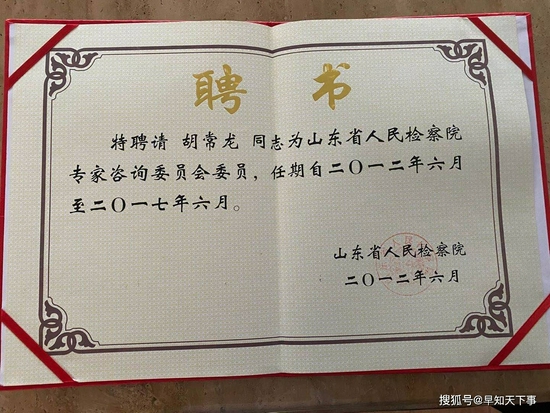 聘书
特聘请 胡常龙 同志为山东省人民检察院
专家咨询委员会委员，任期自二〇一二年六月
至二〇一七年六月。
山东省人民检察院
二〇一二年六月
搜狐号@早知天下事